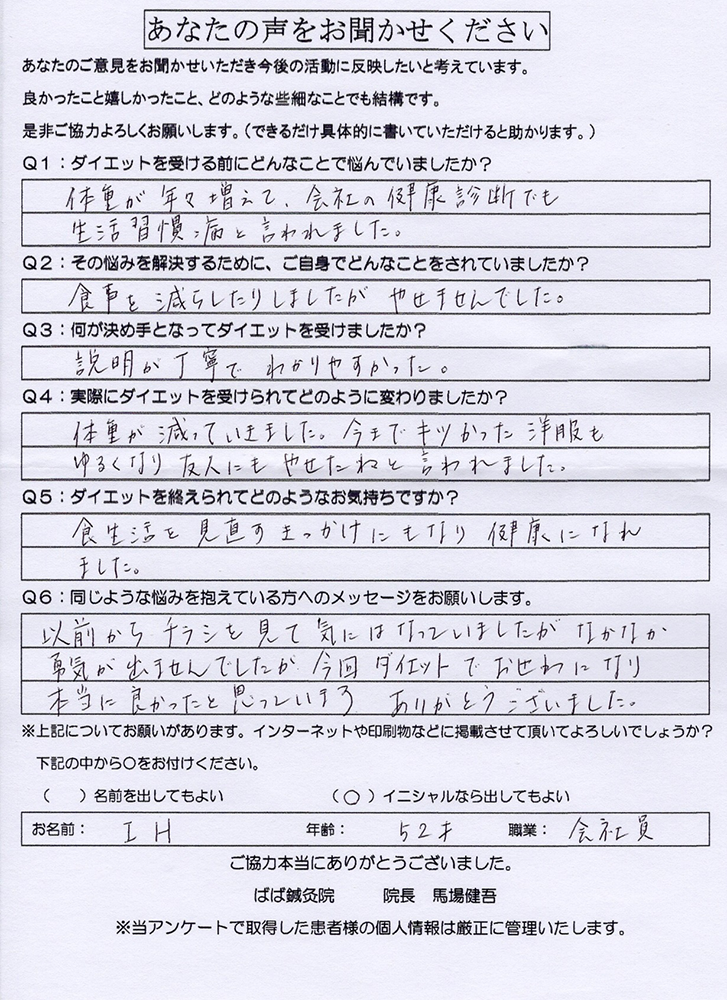 あなたの声をお聞かせください
あなたのご意見をお聞かせいただき今後の活動に反映したいと考えています。
良かったこと嬉しかったこと、どのような些細なことでも結構です。
是非ご協力よろしくお願いします。(できるだけ具体的に書いていただけると助かります。)
Q1:ダイエットを受ける前にどんなことで悩んでいましたか?
体重が年々増えて、会社の健康診断でも
生活習慣病と言われました。
Q2:その悩みを解決するために、ご自身でどんなことをされていましたか?
食事を減らしたりしましたがやせませんでした。
Q3:何が決め手となってダイエットを受けましたか?
説明が丁寧でわかりやすかった。
Q4:実際にダイエットを受けられてどのように変わりましたか?
体重が減っていきました。今までキツかった洋服も
ゆるくなり友人にもやせたねと言われました。
Q5:ダイエットを終えられてどのようなお気持ちですか?
食生活を見直すきっかけにもなり健康になれ
ました。
Q6:同じような悩みを抱えている方へのメッセージをお願いします。
以前からチラシを見て気にはなっていましたがなかなか
勇気が出ませんでしたが今回ダイエットでおせわになり
本当に良かったと思っています ありがとうございました。
※上記についてお願いがあります。インターネットや印刷物などに掲載させて頂いてよろしいでしょうか?
下記の中から○をお付けください。
( )名前を出してもよい (○)イニシャルなら出してもよい
お名前: I H 年齢: 52才 職業: 会社員
ご協力本当にありがとうございました。
ばば鍼灸院 院長 馬場健吾
※当アンケートで取得した患者様の個人情報は厳正に管理いたします。